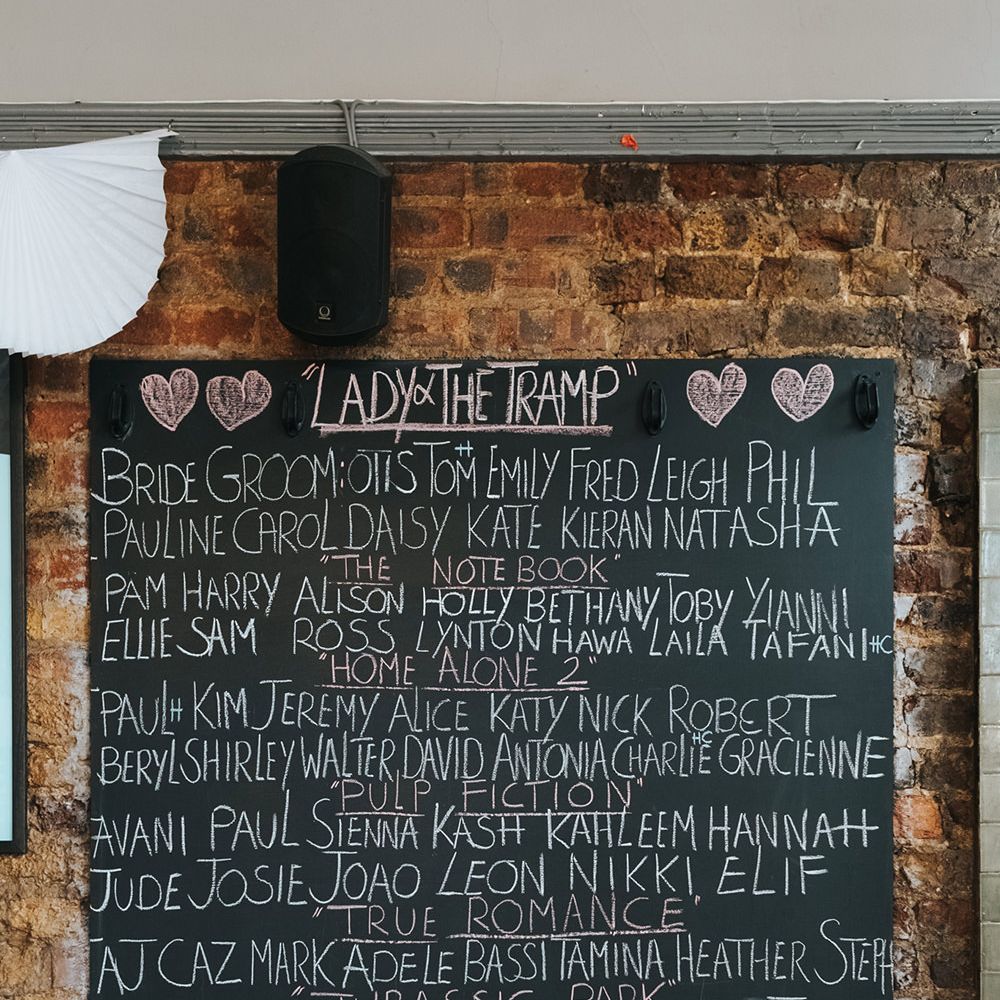 "LADY & THE TRAMP"
BRIDE GROOM: OTIS TOM H EMILY FRED LEIGH PHIL
PAULINE CAROL DAISY KATE KIERAN NATASHA
"THE NOTEBOOK"
PAM HARRY ALISON HOLLY BETHANY TOBY YIANNI
ELLIE SAM ROSS LYNTON HAWA LAILA TAFANI HC
"HOME ALONE 2"
PAUL H KIM JEREMY ALICE KATY NICK ROBERT
BERYL SHIRLEY WALTER DAVID ANTONIA CHARLIE HC GRACIENNE
"PULP FICTION"
AVANI PAUL SIENNA KASH KATHLEEM HANNAH
JUDE JOSIE JOAO LEON NIKKI ELIF
"TRUE ROMANCE"
AJ CAZ MARK ADELE BASSI TAMINA HEATHER STEPH
"JURASSIC PARK"